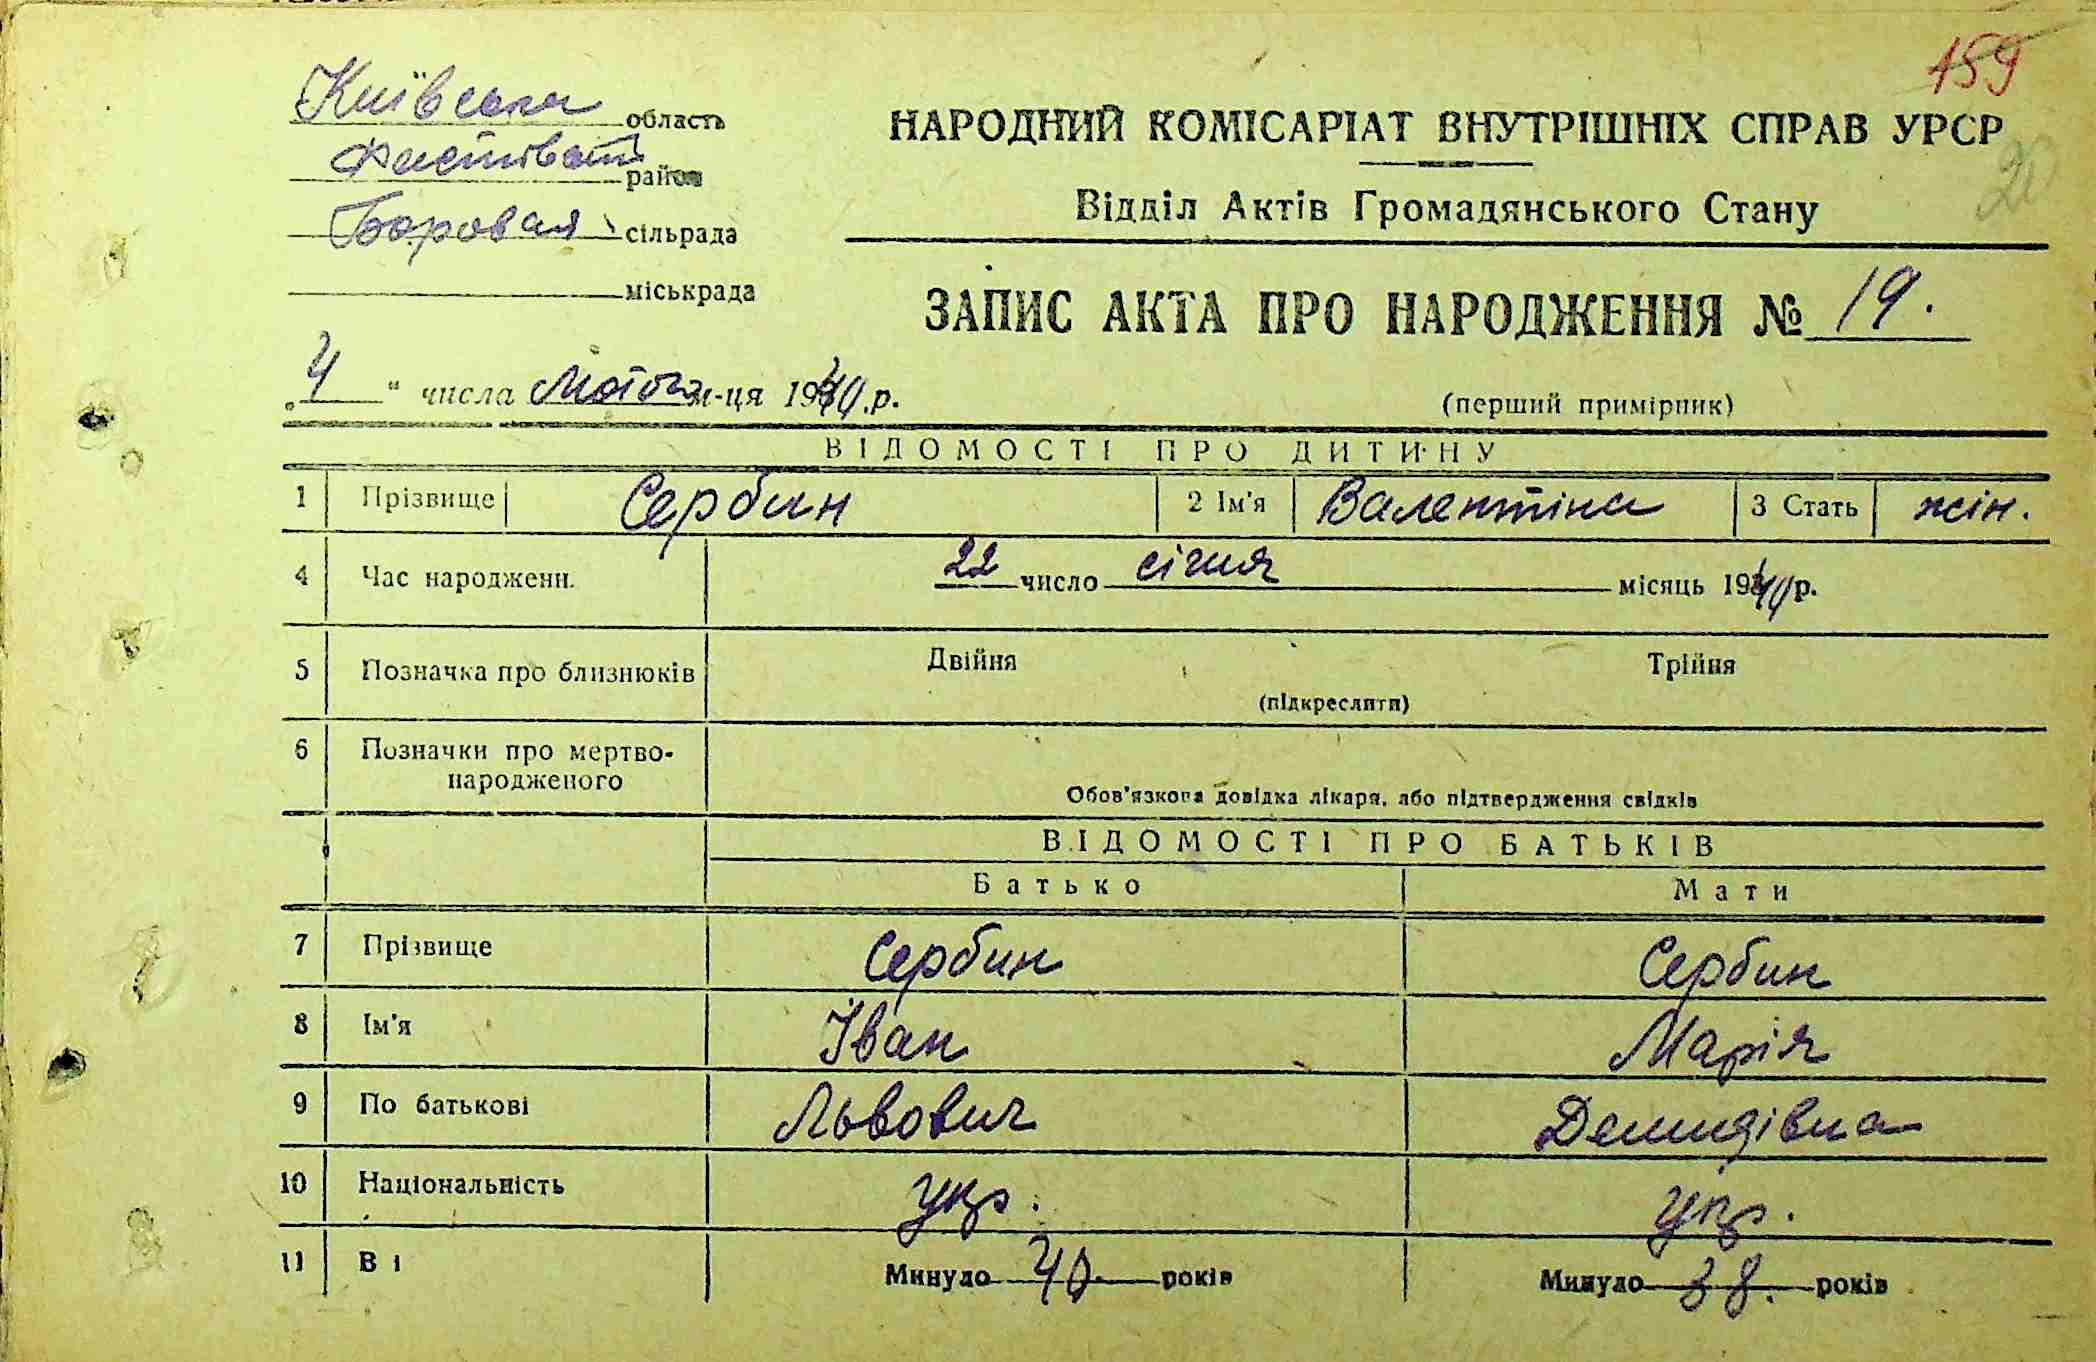 159
Київська область
НАРОДНИЙ КОМІСАРІАТ ВНУТРІШНІХ СПРАВ УРСР
район
20
Боровая сільрада
Відділ Актів Громадянського Стану
міськрада
ЗАПИС АКТА ПРО НАРОДЖЕННЯ № 19.
„4" числа Лютого м-ця 1940.р.
(перший примірник)
ВІДОМОСТІ ПРО ДИТИНУ
1 Прізвище Сербин 2 Ім'я Валентіна 3 Стать жін.
4 Час народженн. 22 число січня місяць 1940 р.
5 Позначка про близнюків Двійня Трійня
(підкреслити)
6 Позначки про мертво-
народженого
Обов'язкова довідка лікаря, або підтвердження свідків
ВІДОМОСТІ ПРО БАТЬКІВ
Батько Мати
7 Прізвище Сербин Сербин
8 Ім'я Іван Марія
9 По батькові Львович Демидівна
10 Національність укр. укр.
11 Ві Минуло 40 років Минуло 38. років